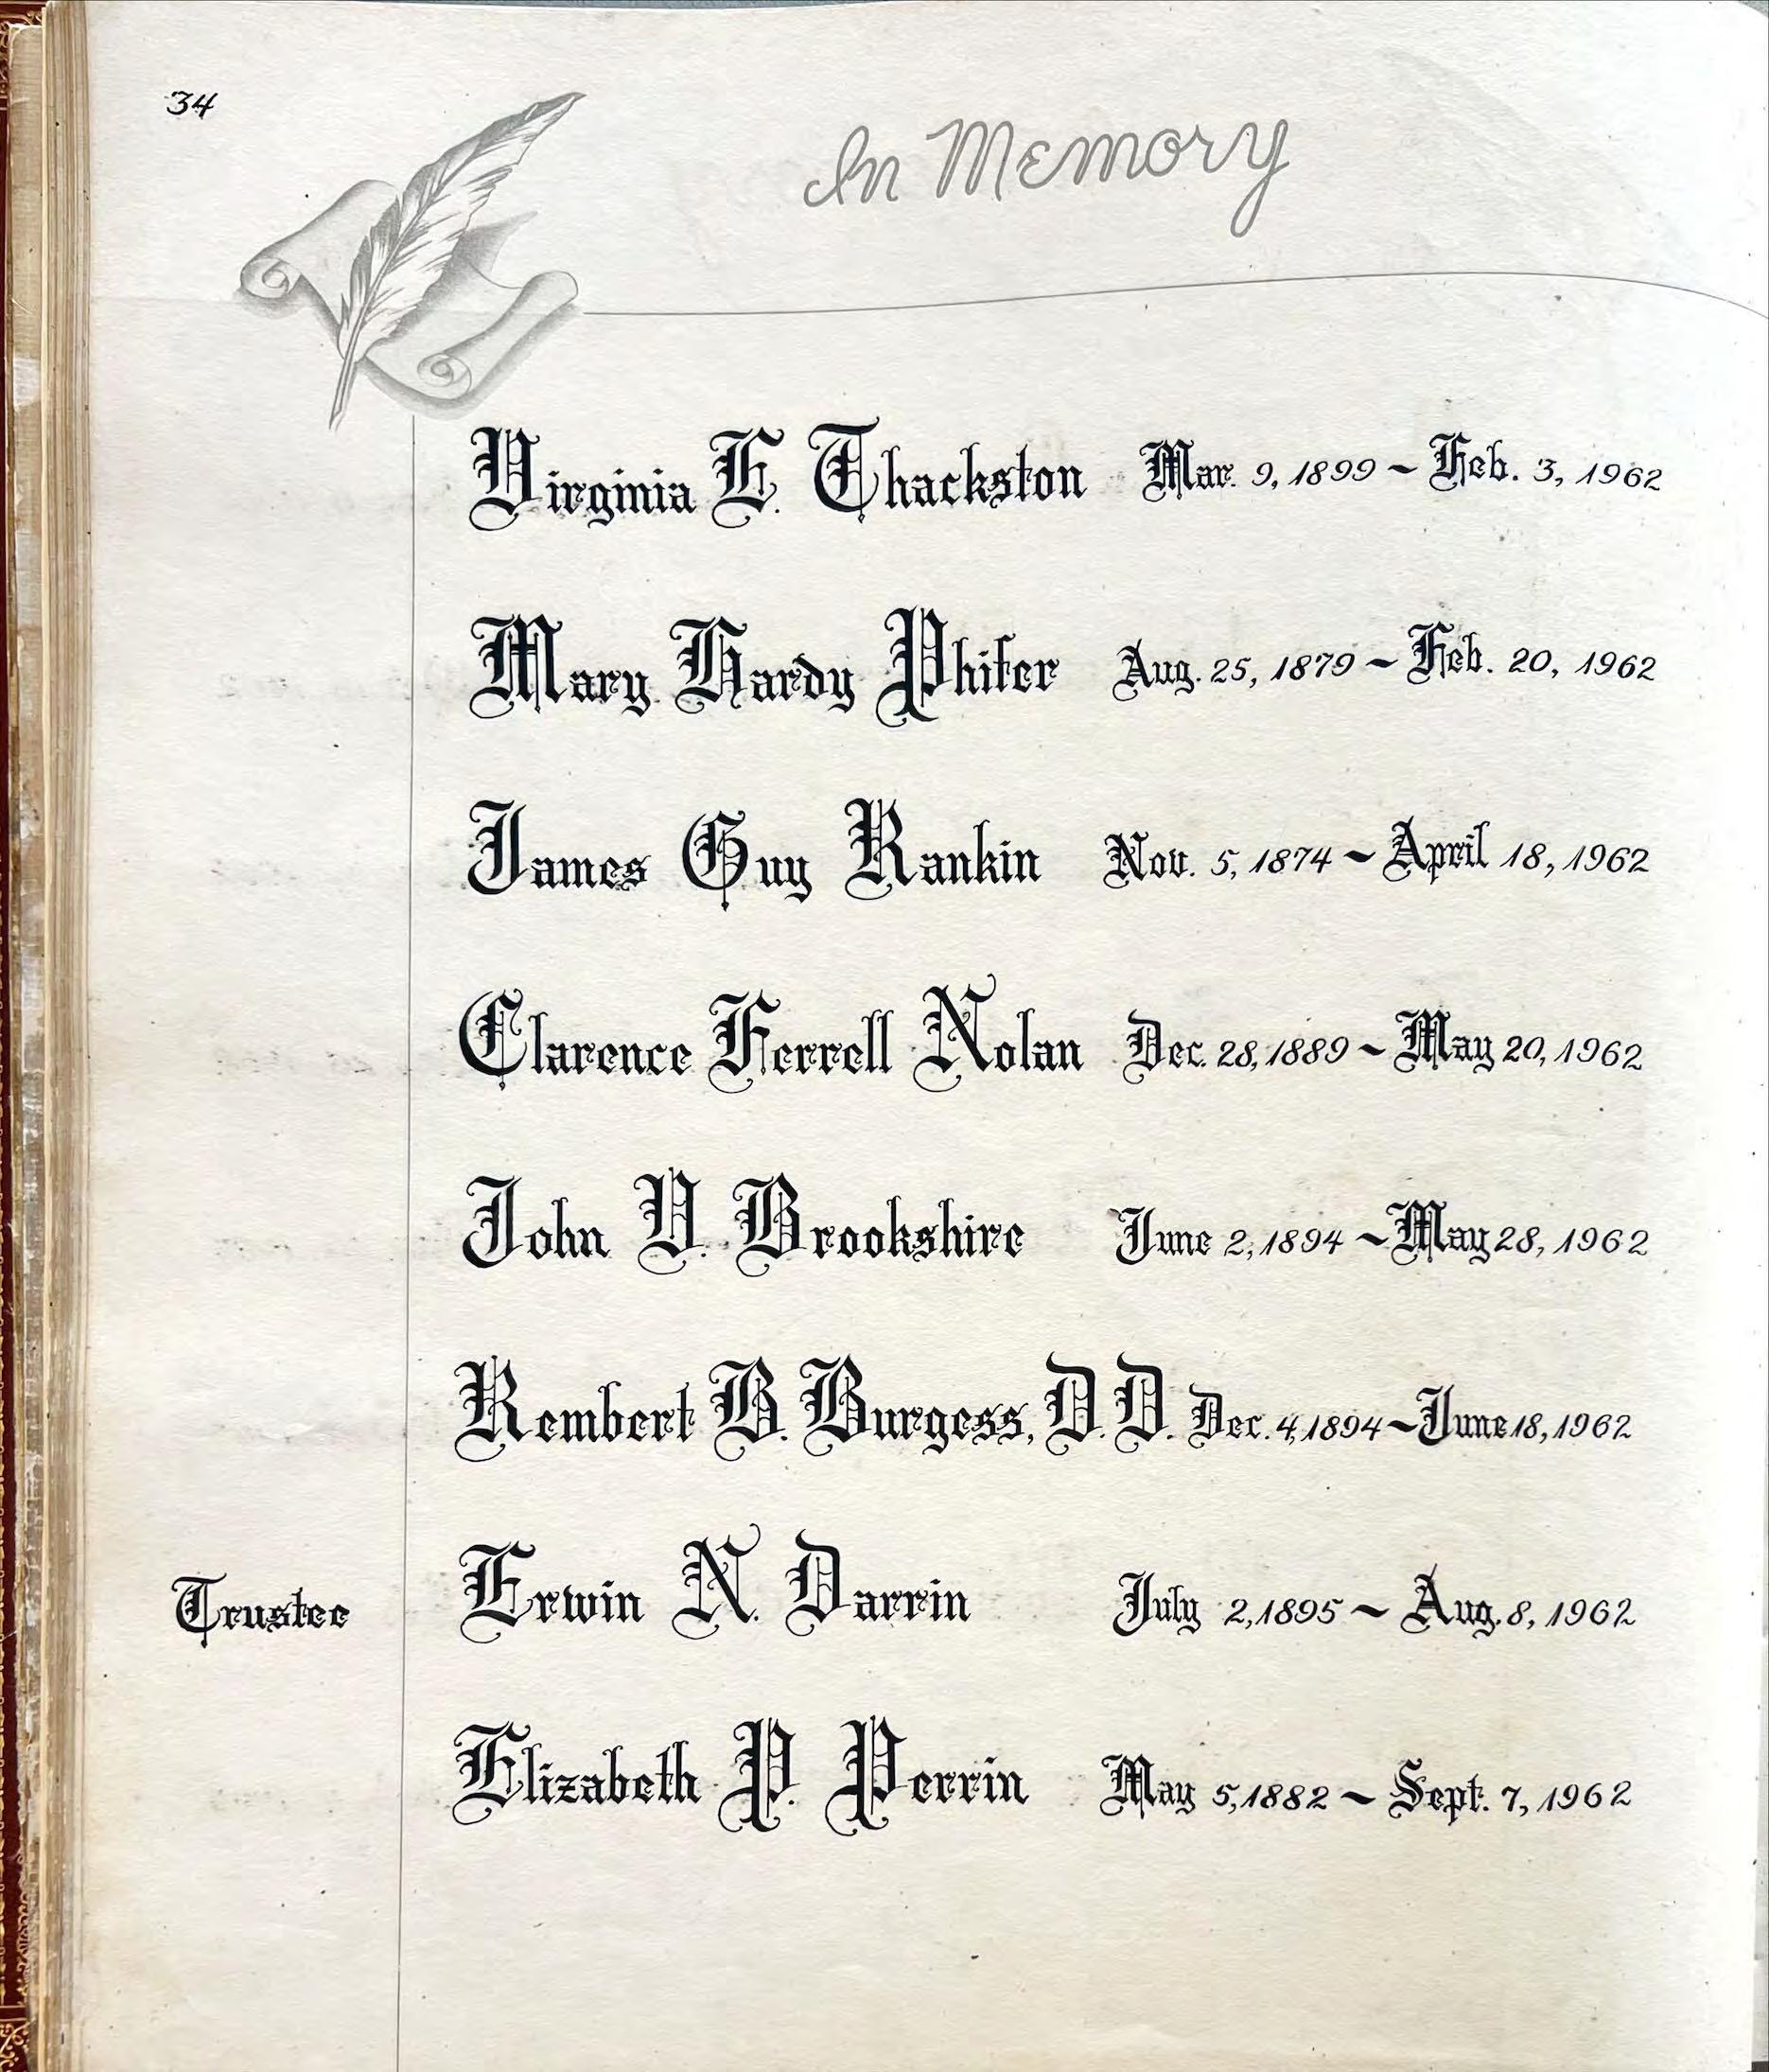 34
In Memory
Virginia E. Thackston Mar. 9, 1899 ~ Feb. 3, 1962
Mary Hardy Phifer Aug. 25, 1879 ~ Feb. 20, 1962
James Guy Rankin Nov. 5, 1874 ~ April 18, 1962
Clarence Ferrell Nolan Dec. 28, 1889 ~ May 20, 1962
John V. Brookshire June 2, 1894 ~ May 28, 1962
Rembert B. Burgess, D.D. Dec. 4, 1894 ~ June 18, 1962
Trustee Erwin N. Darrin July 2, 1895 ~ Aug. 8, 1962
Elizabeth P. Perrin May 5, 1882 ~ Sept. 7, 1962